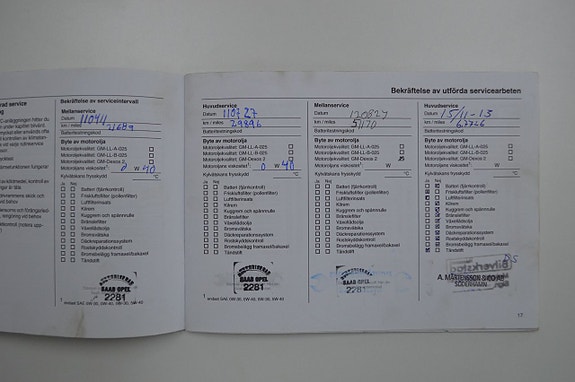 Bekräftelse av serviceintervall
Mellanservice
Datum 110411
km / miles
Batteritestningskod
Byte av motorolja
Motoroljekvalitet: GM-LL-A-025
Motoroljekvalitet: GM-LL-B-025
Motoroljekvalitet: GM-Dexos 2
Motoroljans viskositet¹ 0 W 40
Kylvätskans fryspunkt °C
Ja Nej
Batteri (fjärrkontroll)
Friskluftsfilter (pollenfilter)
Luftfilterinsats
Kilrem
Kuggrem och spännrulle
Bränslefilter
Växellådsolja
Bromsvätska
Däckreparationssystem
Rostskyddskontroll
Bromsbelägg framaxel/bakaxel
Tändstift
SAAB OPEL
2281
Bekräftelse av utförda servicearbeten
Huvudservice
Datum 110727
km / miles 29896
Batteritestningskod
Byte av motorolja
Motoroljekvalitet: GM-LL-A-025
Motoroljekvalitet: GM-LL-B-025
Motoroljekvalitet: GM-Dexos 2
Motoroljans viskositet¹ 0 W 40
Kylvätskans fryspunkt °C
Ja Nej
Batteri (fjärrkontroll)
Friskluftsfilter (pollenfilter)
Luftfilterinsats
Kilrem
Kuggrem och spännrulle
Bränslefilter
Växellådsolja
Bromsvätska
Däckreparationssystem
Rostskyddskontroll
Bromsbelägg framaxel/bakaxel
Tändstift
SAAB OPEL
2281
Mellanservice
Datum 120827
km / miles 51170
Batteritestningskod
Byte av motorolja
Motoroljekvalitet: GM-LL-A-025
Motoroljekvalitet: GM-LL-B-025
Motoroljekvalitet: GM-Dexos 2
Motoroljans viskositet¹ W
Kylvätskans fryspunkt °C
Ja Nej
Batteri (fjärrkontroll)
Friskluftsfilter (pollenfilter)
Luftfilterinsats
Kilrem
Kuggrem och spännrulle
Bränslefilter
Växellådsolja
Bromsvätska
Däckreparationssystem
Rostskyddskontroll
Bromsbelägg framaxel/bakaxel
Tändstift
SAAB OPEL
2281
Huvudservice
Datum 15/11-13
km / miles 67726
Batteritestningskod
Byte av motorolja
Motoroljekvalitet: GM-LL-A-025
Motoroljekvalitet: GM-LL-B-025
Motoroljekvalitet: GM-Dexos 2
Motoroljans viskositet¹ W
Kylvätskans fryspunkt °C
Ja Nej
Batteri (fjärrkontroll)
Friskluftsfilter (pollenfilter)
Luftfilterinsats
Kilrem
Kuggrem och spännrulle
Bränslefilter
Växellådsolja
Bromsvätska
Däckreparationssystem
Rostskyddskontroll
Bromsbelägg framaxel/bakaxel
Tändstift
17